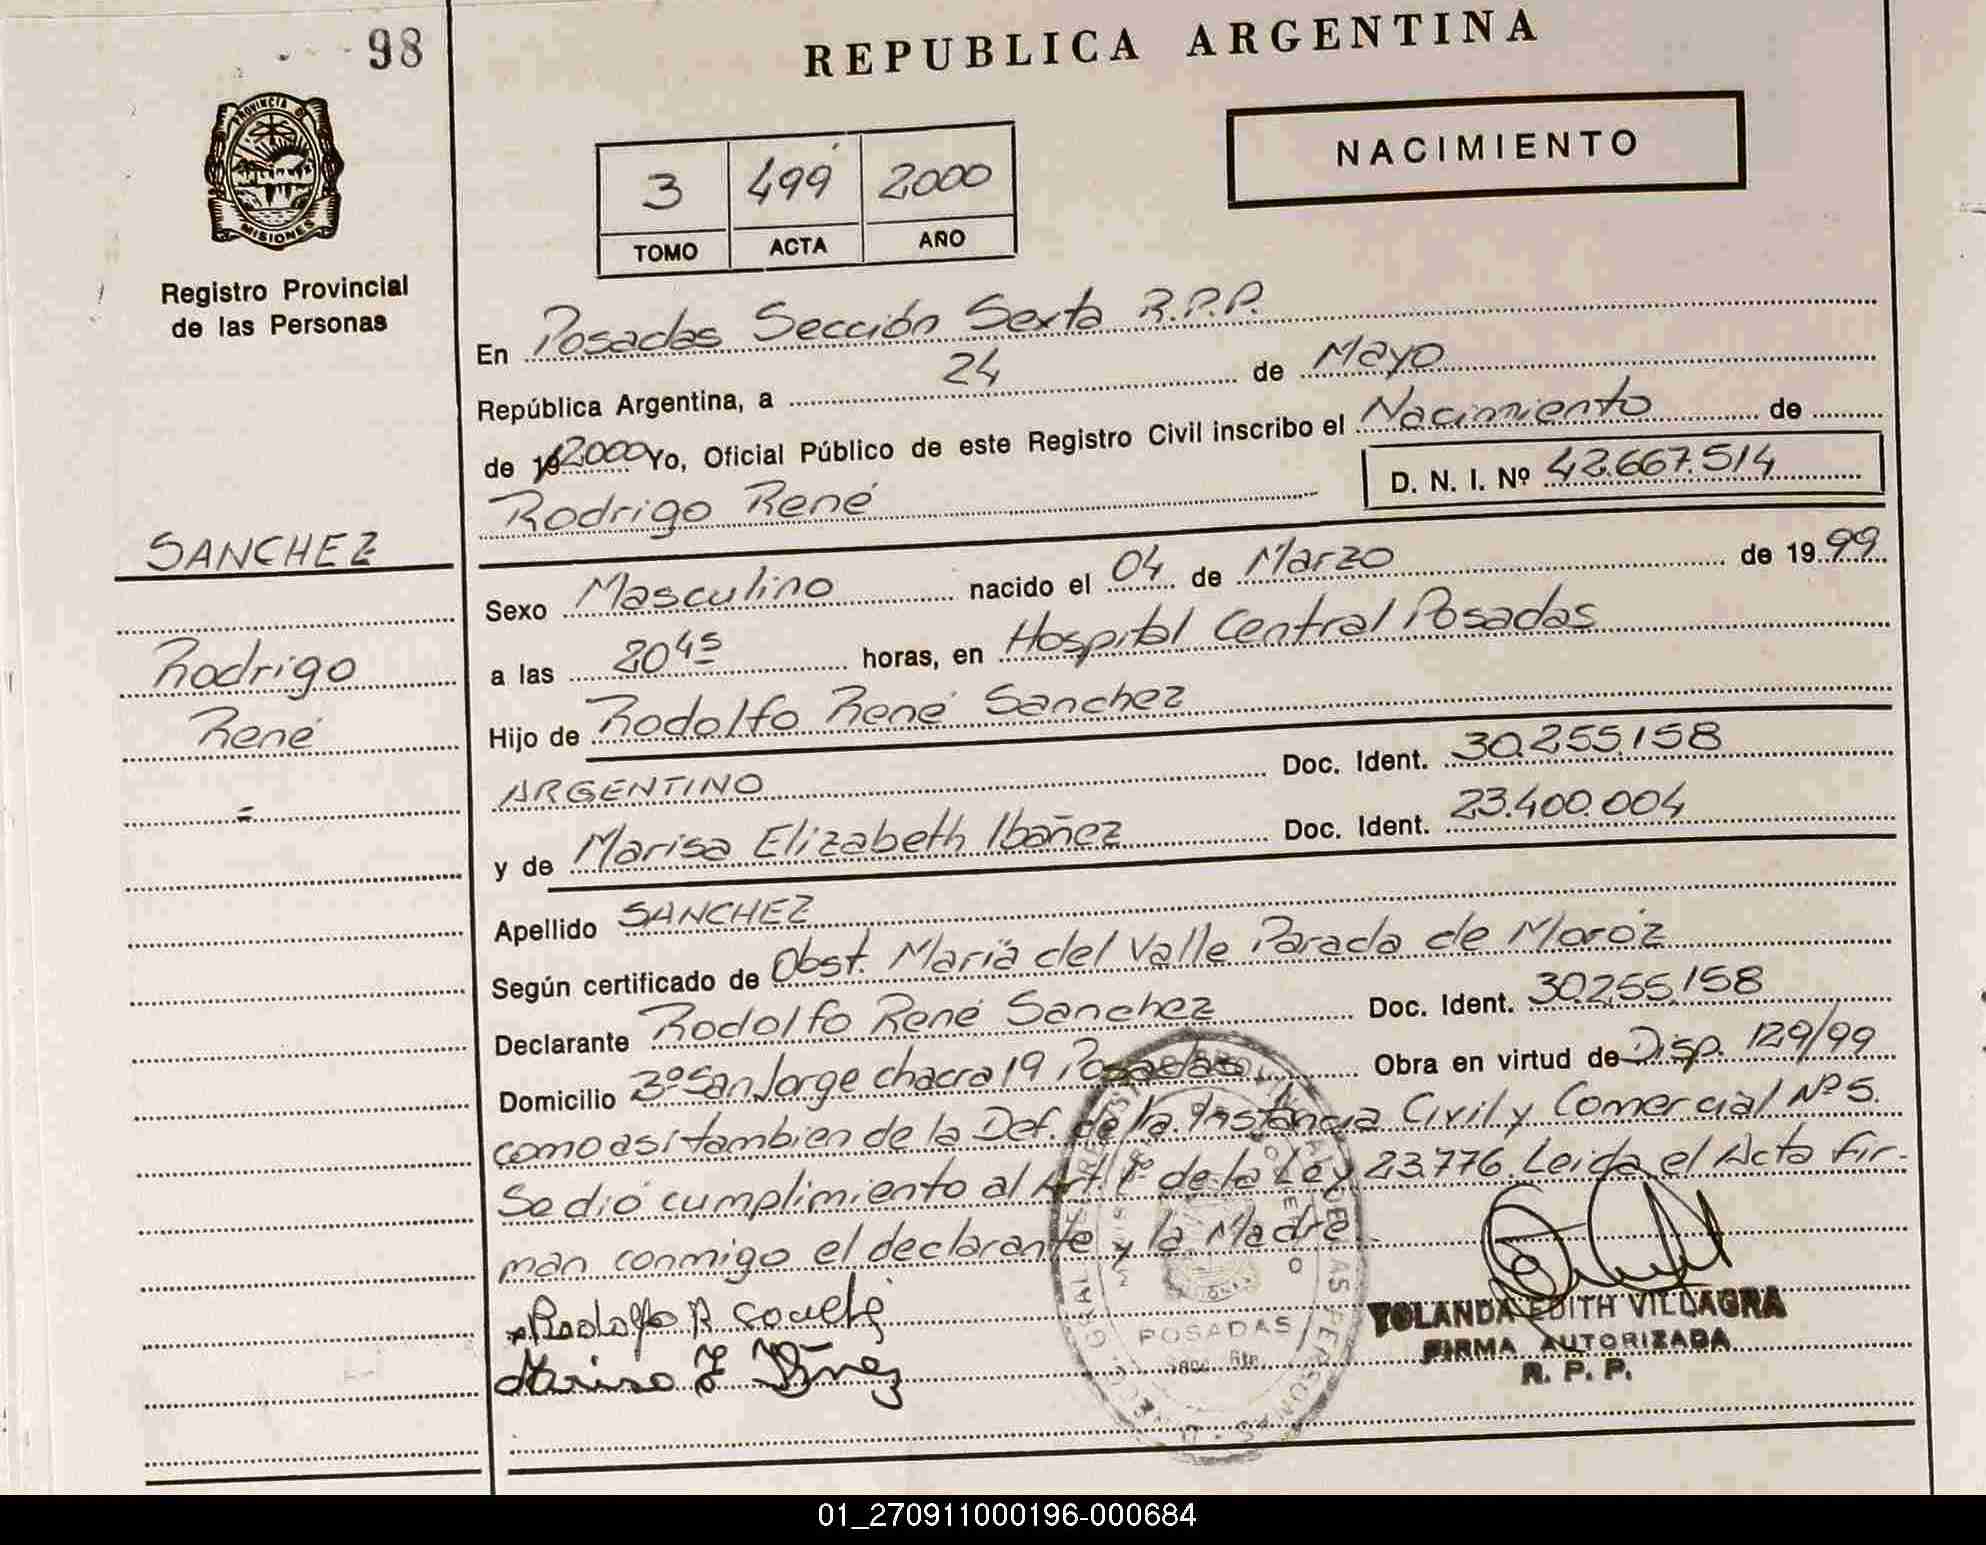 98
REPUBLICA ARGENTINA
PROVINCIA DE
MISIONES
Registro Provincial
de las Personas
NACIMIENTO
3 499 2000
TOMO ACTA AÑO
En Posadas Sección Sexta R.P.P.
República Argentina, a 24 de Mayo
de 19 2000 Yo, Oficial Público de este Registro Civil inscribo el Nacimiento de
Rodrigo René
D. N. I. Nº 42.667.514
SANCHEZ
Rodrigo
René
=
Sexo Masculino nacido el 04 de Marzo de 1999
a las 20 45 horas, en Hospital Central Posadas
Hijo de Rodolfo René Sanchez
ARGENTINO Doc. Ident. 30.255.158
y de Marisa Elizabeth Ibañez Doc. Ident. 23.400.004
Apellido SANCHEZ
Según certificado de Obst. María del Valle Parada de Moroz
Declarante Rodolfo René Sanchez Doc. Ident. 30.255.158
Domicilio Bº San Jorge chacra 19 Posadas Obra en virtud de Disp. 129/99
como asi tambien de la Def. de 1a. Instancia Civil y Comercial Nº 5.
Se dió cumplimiento al Art. 1º de la Ley 23.776. Leida el Acta fir-
man conmigo el declarante y la Madre
Rodolfo R
Marisa E Ibañez
POSADAS
YOLANDA EDITH VILLAGRA
FIRMA AUTORIZADA
R. P. P.
01_270911000196-000684